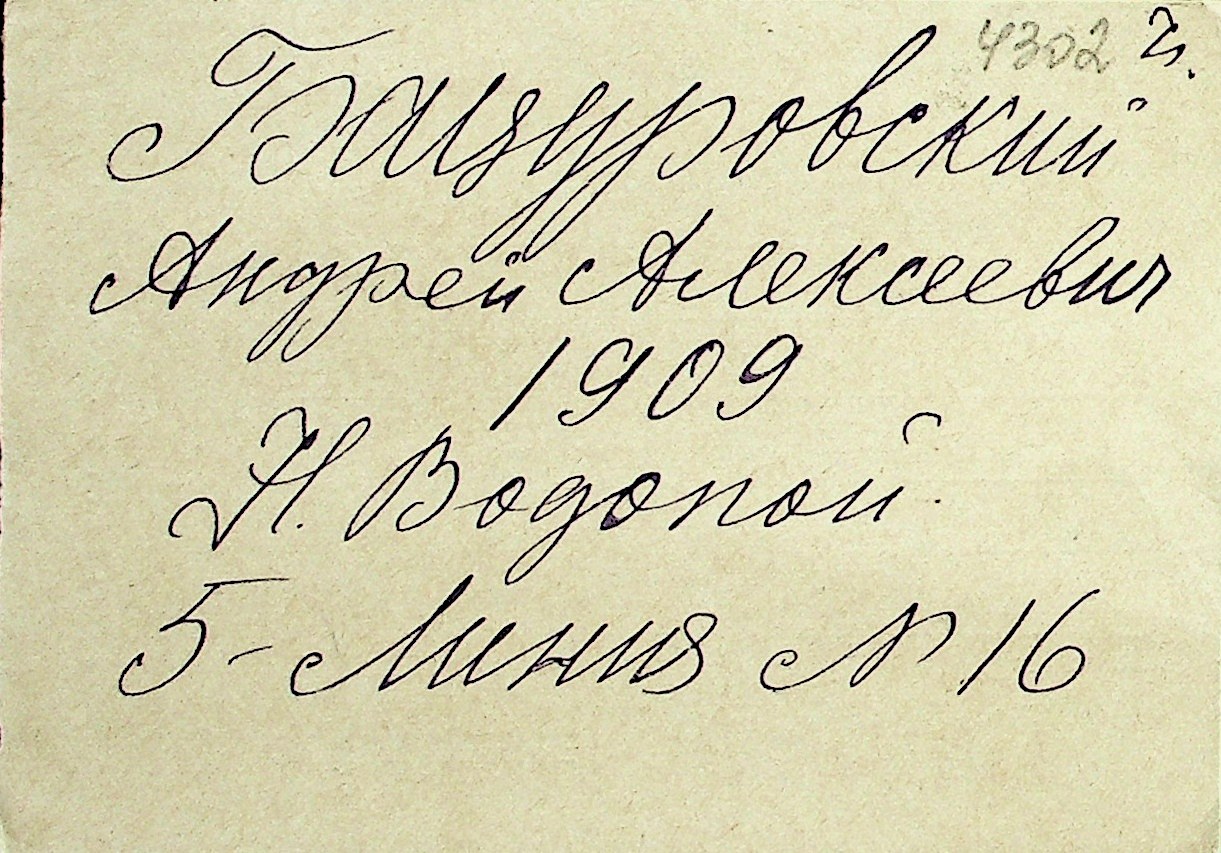 4302 г.
Бацуровский
Андрей Алексеевич
1909
Н. Водопой
5 - Линия № 16